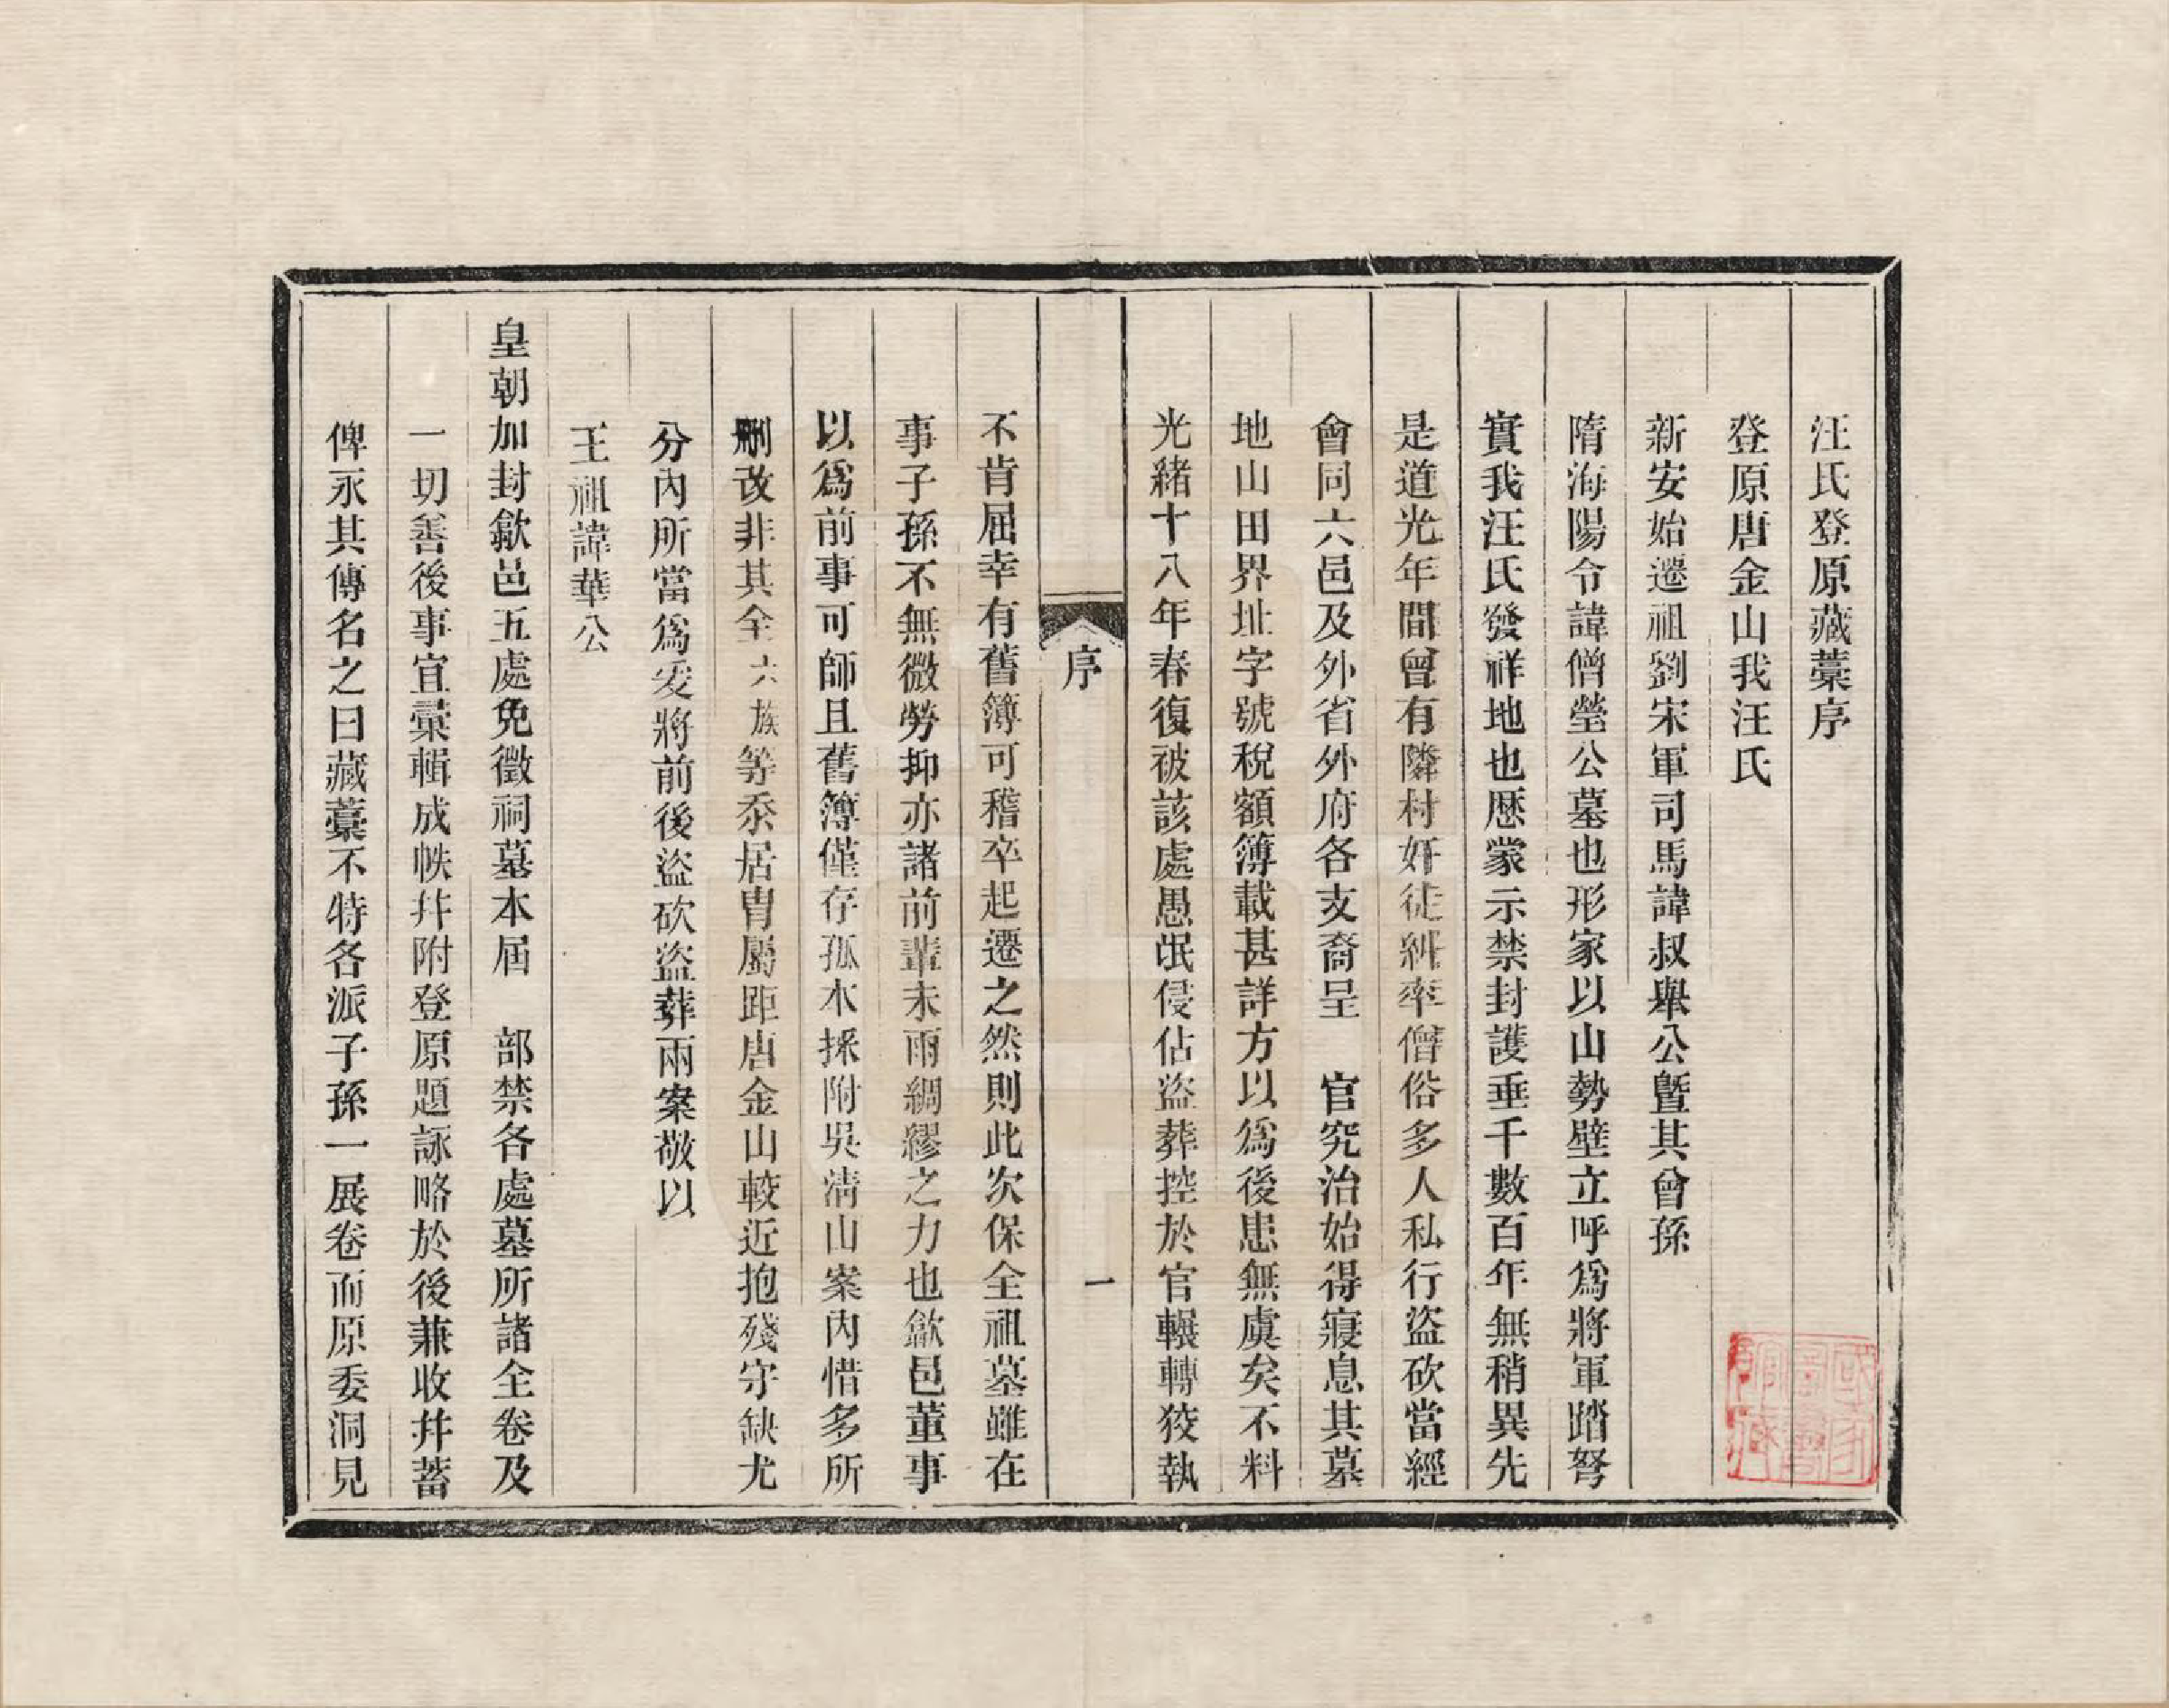 汪氏登原藏藁序
登原唐金山我汪氏
新安始遷祖劉宋軍司馬諱叔舉公暨其曾孫
隋海陽令諱僧瑩公墓也形家以山勢壁立呼爲將軍踏弩
實我汪氏發祥地也歷蒙示禁封護垂千數百年無稍異先
是道光年間曾有隣村奸徒糾率僧俗多人私行盜砍當經
會同六邑及外省外府各支裔呈 官究治始得寢息其墓
地山田界址字號稅額簿載甚詳方以爲後患無虞矣不料
光緒十八年春復被該處愚氓侵佔盜葬控於官輾轉狡執
序
一
不肯屈幸有舊簿可稽卒起遷之然則此次保全祖墓雖在
事子孫不無微勞抑亦諸前輩未雨綢繆之力也歙邑董事
以爲前事可師且舊簿僅存孤本採附吳清山案內惜多所
刪改非其全六族等忝居胄屬距唐金山較近抱殘守缺尤
分內所當爲爰將前後盜砍盜葬兩案敬以
王祖諱華公
皇朝加封歙邑五處免徵祠墓本屆 部禁各處墓所諸全卷及
一切善後事宜彙輯成帙幷附登原題詠略於後兼收幷蓄
俾永其傳名之曰藏藁不特各派子孫一展卷而原委洞見